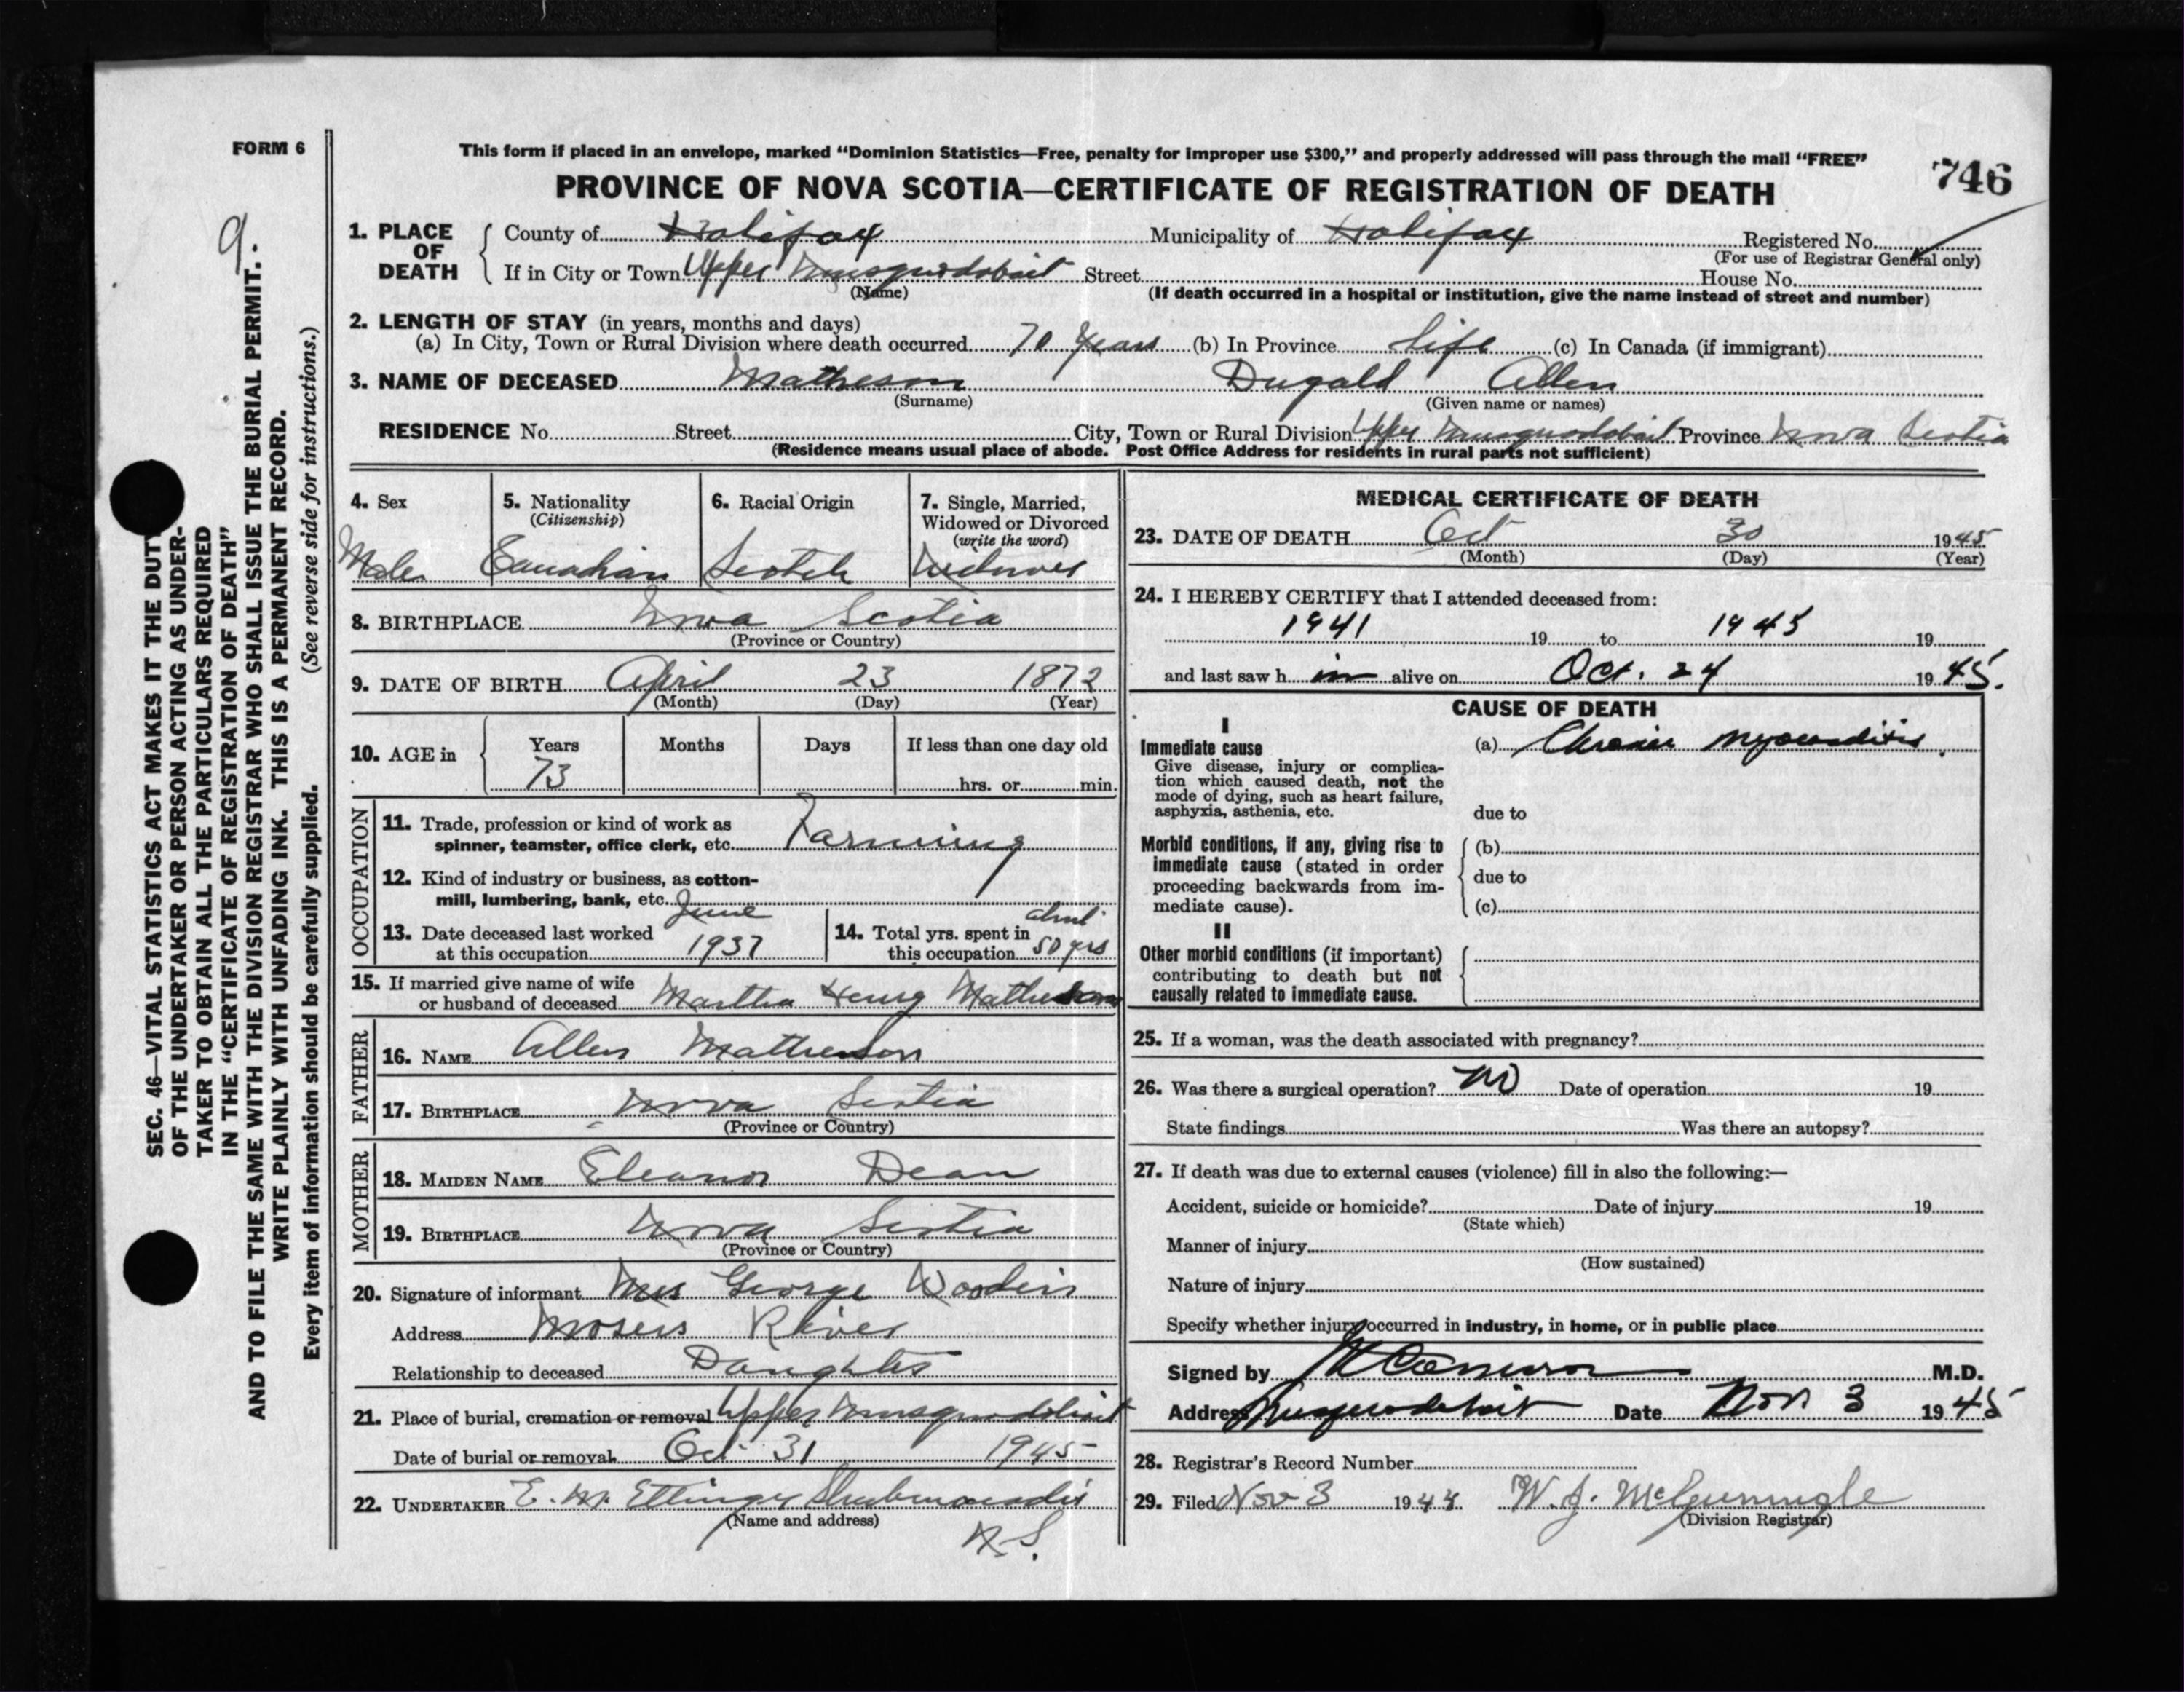 FORM 6
This form if placed in an envelope, marked “Dominion Statistics—Free, penalty for improper use $300,” and properly addressed will pass through the mail “FREE”
746
PROVINCE OF NOVA SCOTIA—CERTIFICATE OF REGISTRATION OF DEATH
1. PLACE OF DEATH
County of Halifax Municipality of Halifax Registered No.
(For use of Registrar General only)
If in City or Town Upper Musquodoboit Street House No.
(Name)
(If death occurred in a hospital or institution, give the name instead of street and number)
2. LENGTH OF STAY (in years, months and days)
(a) In City, Town or Rural Division where death occurred 70 years (b) In Province Life (c) In Canada (if immigrant)
3. NAME OF DECEASED Matheson Dugald Allen
(Surname) (Given name or names)
RESIDENCE No. Street City, Town or Rural Division Upper Musquodoboit Province Nova Scotia
(Residence means usual place of abode. Post Office Address for residents in rural parts not sufficient)
4. Sex
Male
5. Nationality
(Citizenship)
Canadian
6. Racial Origin
Scotch
7. Single, Married,
Widowed or Divorced
(write the word)
Widower
8. BIRTHPLACE Nova Scotia
(Province or Country)
9. DATE OF BIRTH April 23 1872
(Month) (Day) (Year)
10. AGE in Years Months Days If less than one day old
73 hrs. or min.
OCCUPATION
11. Trade, profession or kind of work as
spinner, teamster, office clerk, etc. Farming
12. Kind of industry or business, as cotton-
mill, lumbering, bank, etc.
13. Date deceased last worked
at this occupation June 1937
14. Total yrs. spent in
this occupation about 50 yrs
15. If married give name of wife
or husband of deceased Martha Henry Matheson
FATHER
16. NAME Allen Matheson
17. BIRTHPLACE Nova Scotia
(Province or Country)
MOTHER
18. MAIDEN NAME Eleanor Dean
19. BIRTHPLACE Nova Scotia
(Province or Country)
20. Signature of informant Mrs George
Address Mosers River
Relationship to deceased Daughter
21. Place of burial, cremation or removal Upper Musquodoboit
Date of burial or removal Oct 31 1945
22. UNDERTAKER E. M. Ettinger Shubenacadie
(Name and address)
N.S.
MEDICAL CERTIFICATE OF DEATH
23. DATE OF DEATH Oct 30 1945
(Month) (Day) (Year)
24. I HEREBY CERTIFY that I attended deceased from:
1941 19 to 1945 19
and last saw h im alive on Oct. 24 1945.
CAUSE OF DEATH
I
Immediate cause
Give disease, injury or complica-
tion which caused death, not the
mode of dying, such as heart failure,
asphyxia, asthenia, etc.
(a) Chronic myocarditis.
due to
Morbid conditions, if any, giving rise to
immediate cause (stated in order
proceeding backwards from im-
mediate cause).
(b)
due to
(c)
II
Other morbid conditions (if important)
contributing to death but not
causally related to immediate cause.
25. If a woman, was the death associated with pregnancy?
26. Was there a surgical operation? no Date of operation 19
State findings Was there an autopsy?
27. If death was due to external causes (violence) fill in also the following:—
Accident, suicide or homicide? Date of injury 19
(State which)
Manner of injury
(How sustained)
Nature of injury
Specify whether injury occurred in industry, in home, or in public place
Signed by M.D.
Address Musquodoboit Date Nov 3 1945
28. Registrar's Record Number
29. Filed Nov 3 19 W. J.
(Division Registrar)
9.
SEC. 46—VITAL STATISTICS ACT MAKES IT THE DUTY
OF THE UNDERTAKER OR PERSON ACTING AS UNDER-
TAKER TO OBTAIN ALL THE PARTICULARS REQUIRED
IN THE “CERTIFICATE OF REGISTRATION OF DEATH”
AND TO FILE THE SAME WITH THE DIVISION REGISTRAR WHO SHALL ISSUE THE BURIAL PERMIT.
WRITE PLAINLY WITH UNFADING INK. THIS IS A PERMANENT RECORD.
Every item of information should be carefully supplied. (See reverse side for instructions.)